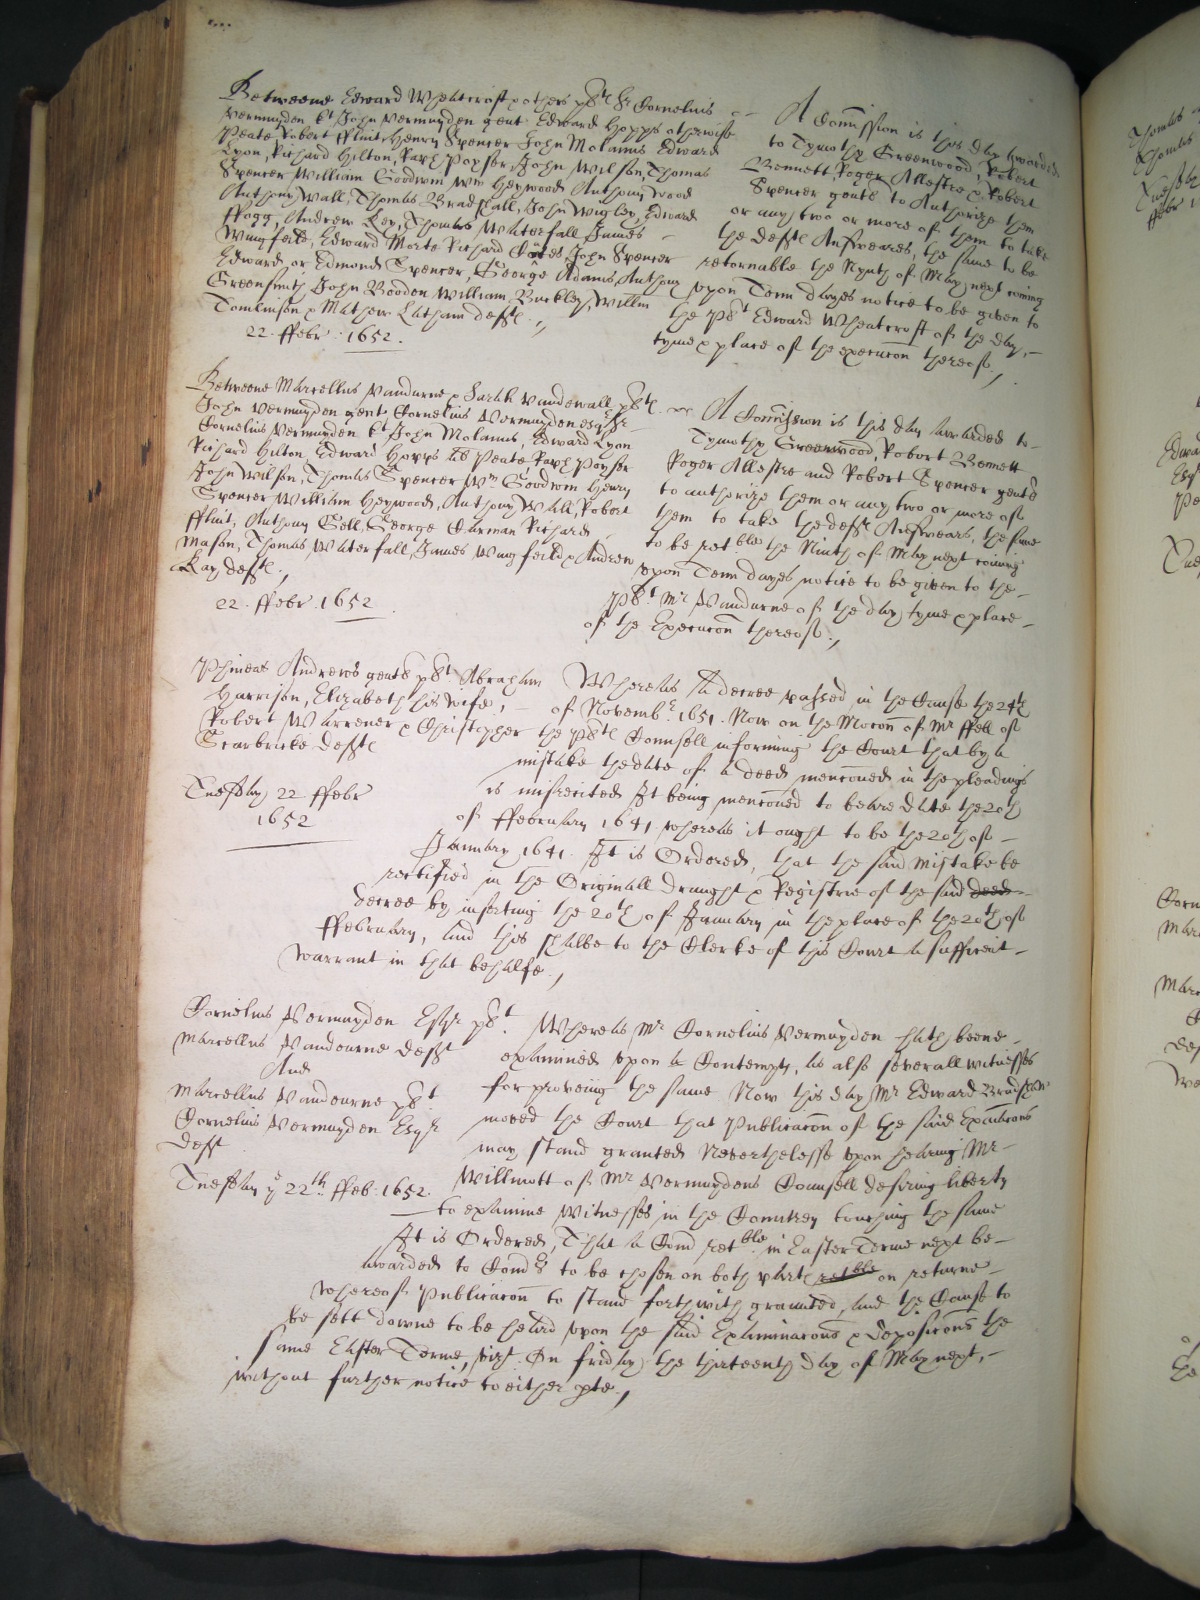 Betweene Edward Wheatcroft & others plts Sr Cornelius
Vermuyden kt John Vermuyden gent Edward Hopps otherwise
Peate Robert fflint Henry Spencer John Molanus Edward
Lyon, Richard Hilton, Raph Poyser, John Wilson, Thomas
Spencer William Goodwin Wm Heywood Anthony Wood
Anthony Wall, Thomas Bradshall, John Wigley, Edward
ffogg, Andrew Key, Thomas Waterfall James
Wingfeild, Edward Morte Richard Cotes, John Spencer
Edward or Edmond Spencer, George Adams, Anthony
Greensmith John Booden William Buckley, Willm
Tomlinson & Mathew Latham defts
22 ffebr. 1652.
A Comission is this day awarded
to Tymothy Greenwood, Robert
Bennett, Roger Allestre & Robert
Spencer gents to Authorize them
or any two or more of them to take
the defts Answeares, the same to be
retornable the Nynth of May next coming
upon Tenn dayes notice to be given to
the plt Edward Wheatcroft of the day,
tyme & place of the execucon thereof
Betweene Marcellus Vandurne & Sarah Vandewall plts
John Vermuyden gent Cornelius Vermuyden esqr Sr
Cornelius Vermuyden kt John Molanus, Edward Lyon
Richard Hilton Edward Hopps als Peate, Raph Poyser
John Wilson, Thomas Spencer Wm Goodwin Henry
Spencer William Heywood, Anthony Wall, Robert
fflint, Anthony Gell, George Carman Richard
Mason, Thomas Waterfall, James Wingfeild & Andrew
Kay defts.
22. ffebr. 1652
A Comission is this day awarded to
Tymothy Greenwood, Robert Bennett
Roger Allestre and Robert Spencer gents
to authorize them or any two or more of
them to take the defts Answears, the same
to be retble the Ninth of May next coming
upon Tenn dayes notice to be given to the
plt. Mr Vandurne of the day tyme & place
of the Execucon thereof.
Phineas Andrews gents plt Abraham
Harrison, Elizabeth his wife,
Robert Warrener & Christopher
Scarbricke defts
Tuesday 22 ffebr
1652
Whereas A decree passed in the Cause the 24th
of Novembr 1651. Now on the Mocon of Mr ffell of
the plts Counsell informing the Court that by a
mistake the date of a deed menconed in the pleadings
is misrecited It being menconed to beare date the 20th
of ffebruary 1641 whereas it ought to be the 20th of
January 1641. It is Ordered, that the said mistake be
rectified in the Originall draught & Registrie of the said deed
decree by inserting the 20th of January in the place of the 20th of
ffebruary, and this shalbe to the Clerke of this Court a sufficient
warrant in that behalfe.
Cornelius Vermuyden Esqr plt.
Marcellus Vandourne deft
And
Marcellus Vandourne plt
Cornelius Vermuyden Esqr
deft
Tuesday ye 22th ffeb: 1652.
Whereas Mr Cornelius Vermuyden hath beene
examined upon a Contempt, as also severall witnesses
for proveing the same Now this day Mr Edward Bradshaw
moved the Court that Publicacon of the said Exaicons
may stand granted Neverthelesse upon hearing Mr
Willmott of Mr Vermuydens Counsell desiring liberty
to examine Witnesses in the Countrey touching the same
It is Ordered, That a Comd retble in Easter Terme next be
awarded to Comrs to be chosen on both parts retble on returne
whereof Publicacon to stand forthwith graunted, and the Cause to
be sett downe to be heard upon the said Examinacons & deposicons the
same Easter Terme, vizt. On friday the thirteenth day of May next,
without further notice to either pte.